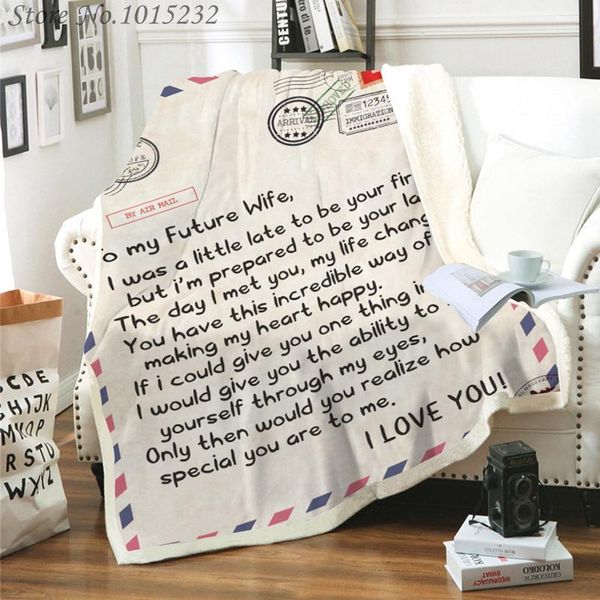 Store No.1015232
CENTUR
ARRIVAL
12345
IMMIGRATION
BY AIR MAIL
o my Future Wife,
I was a little late to be your fir
but i'm prepared to be your la
The day I met you, my life chang
You have this incredible way of
making my heart happy.
If i could give you one thing i
I would give you the ability to
yourself through my eyes,
Only then would you realize how
special you are to me.
I LOVE YOU!
BCDE
HIJK
KOŁODKO